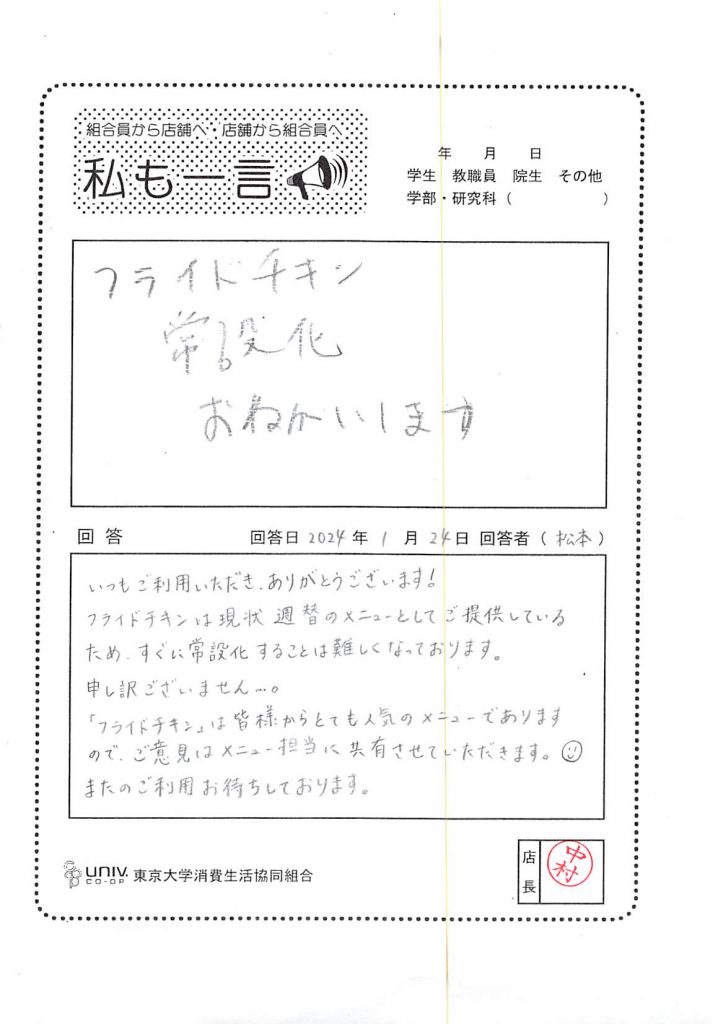 組合員から店舗へ・店舗から組合員へ
私も一言
年 月 日
学生 教職員 院生 その他
学部・研究科（ ）
フライドチキン
常設化
おねがいします
回答 回答日 2024 年 1 月 24 日 回答者（ 松本 ）
いつもご利用いただき、ありがとうございます！
フライドチキンは現状 週替のメニューとしてご提供している
ため、すぐに常設化することは難しくなっております。
申し訳ございません…。
「フライドチキン」は皆様からとても人気のメニューであります
ので、ご意見はメニュー担当に共有させていただきます。
またのご利用お待ちしております。
UNIV. CO-OP 東京大学消費生活協同組合
店長 中村